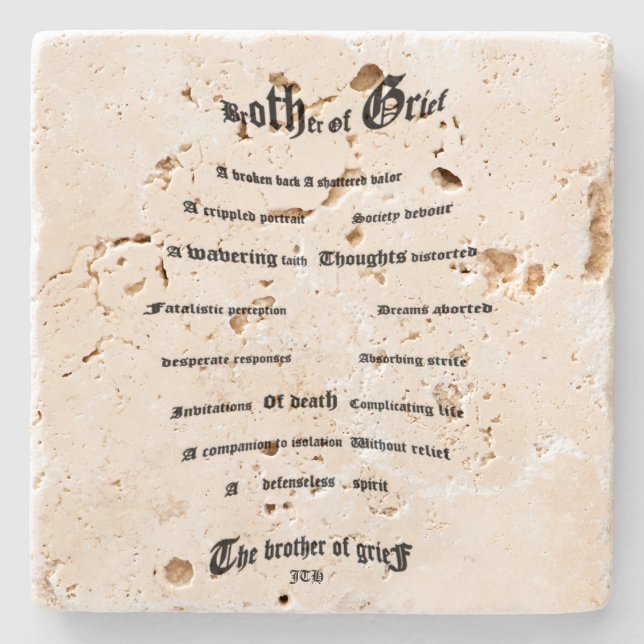 Brother Of Grief
A broken back A shattered valor
A crippled portrait Society devour
A wavering faith Thoughts distorted
Fatalistic perception Dreams aborted
desperate responses Absorbing strife
Invitations Of death Complicating life
A companion to isolation Without relief
A defenseless spirit
The brother of grieF
JTH